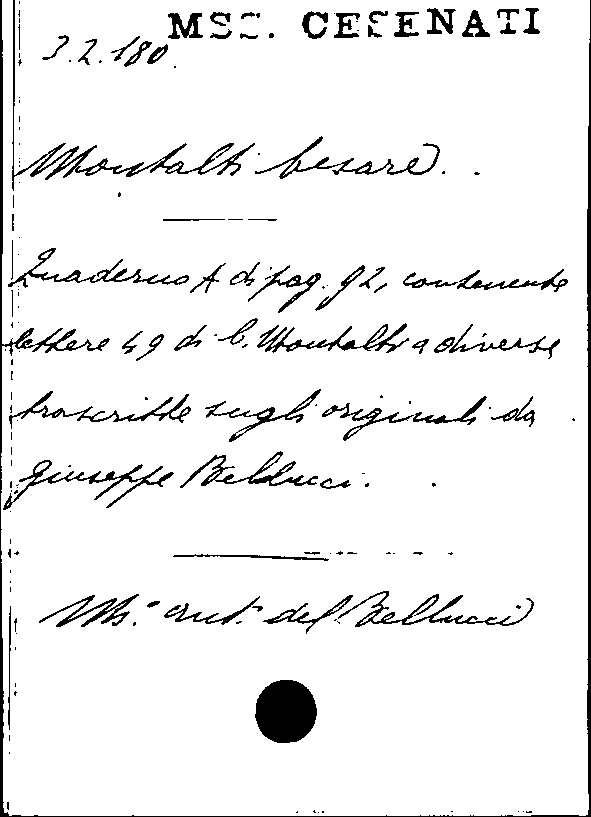 MSS. CESENATI
3.2.180.
Montalti Cesare.
Quaderno A di pag. 92, contenente
lettere 49 di C. Montalti a diversi
trascritte sugli originali da
Giuseppe Bellucci.
Ms. aut. del Bellucci